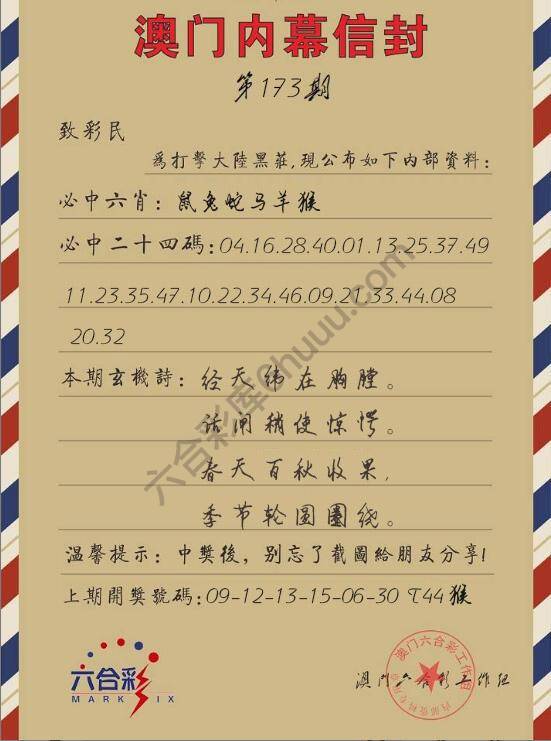 澳门内幕信封
第173期
致彩民
為打擊大陸黑莊,現公布如下內部資料:
必中六肖: 鼠兔蛇马羊猴
必中二十四碼:04.16.28.40.01.13.25.37.49
11.23.35.47.10.22.34.46.09.21.33.44.08
20.32
本期玄機詩: 经天纬在胸膛。
话闸稍使惊愕。
春天百秋收果,
季节轮圆圈线。
温馨提示: 中獎後, 别忘了截圖給朋友分享!
上期開獎號碼:09-12-13-15-06-30 T44猴
六合彩库@huuu.com
六合彩
MARK SIX
澳门六合彩工作组
澳门六合彩工作组